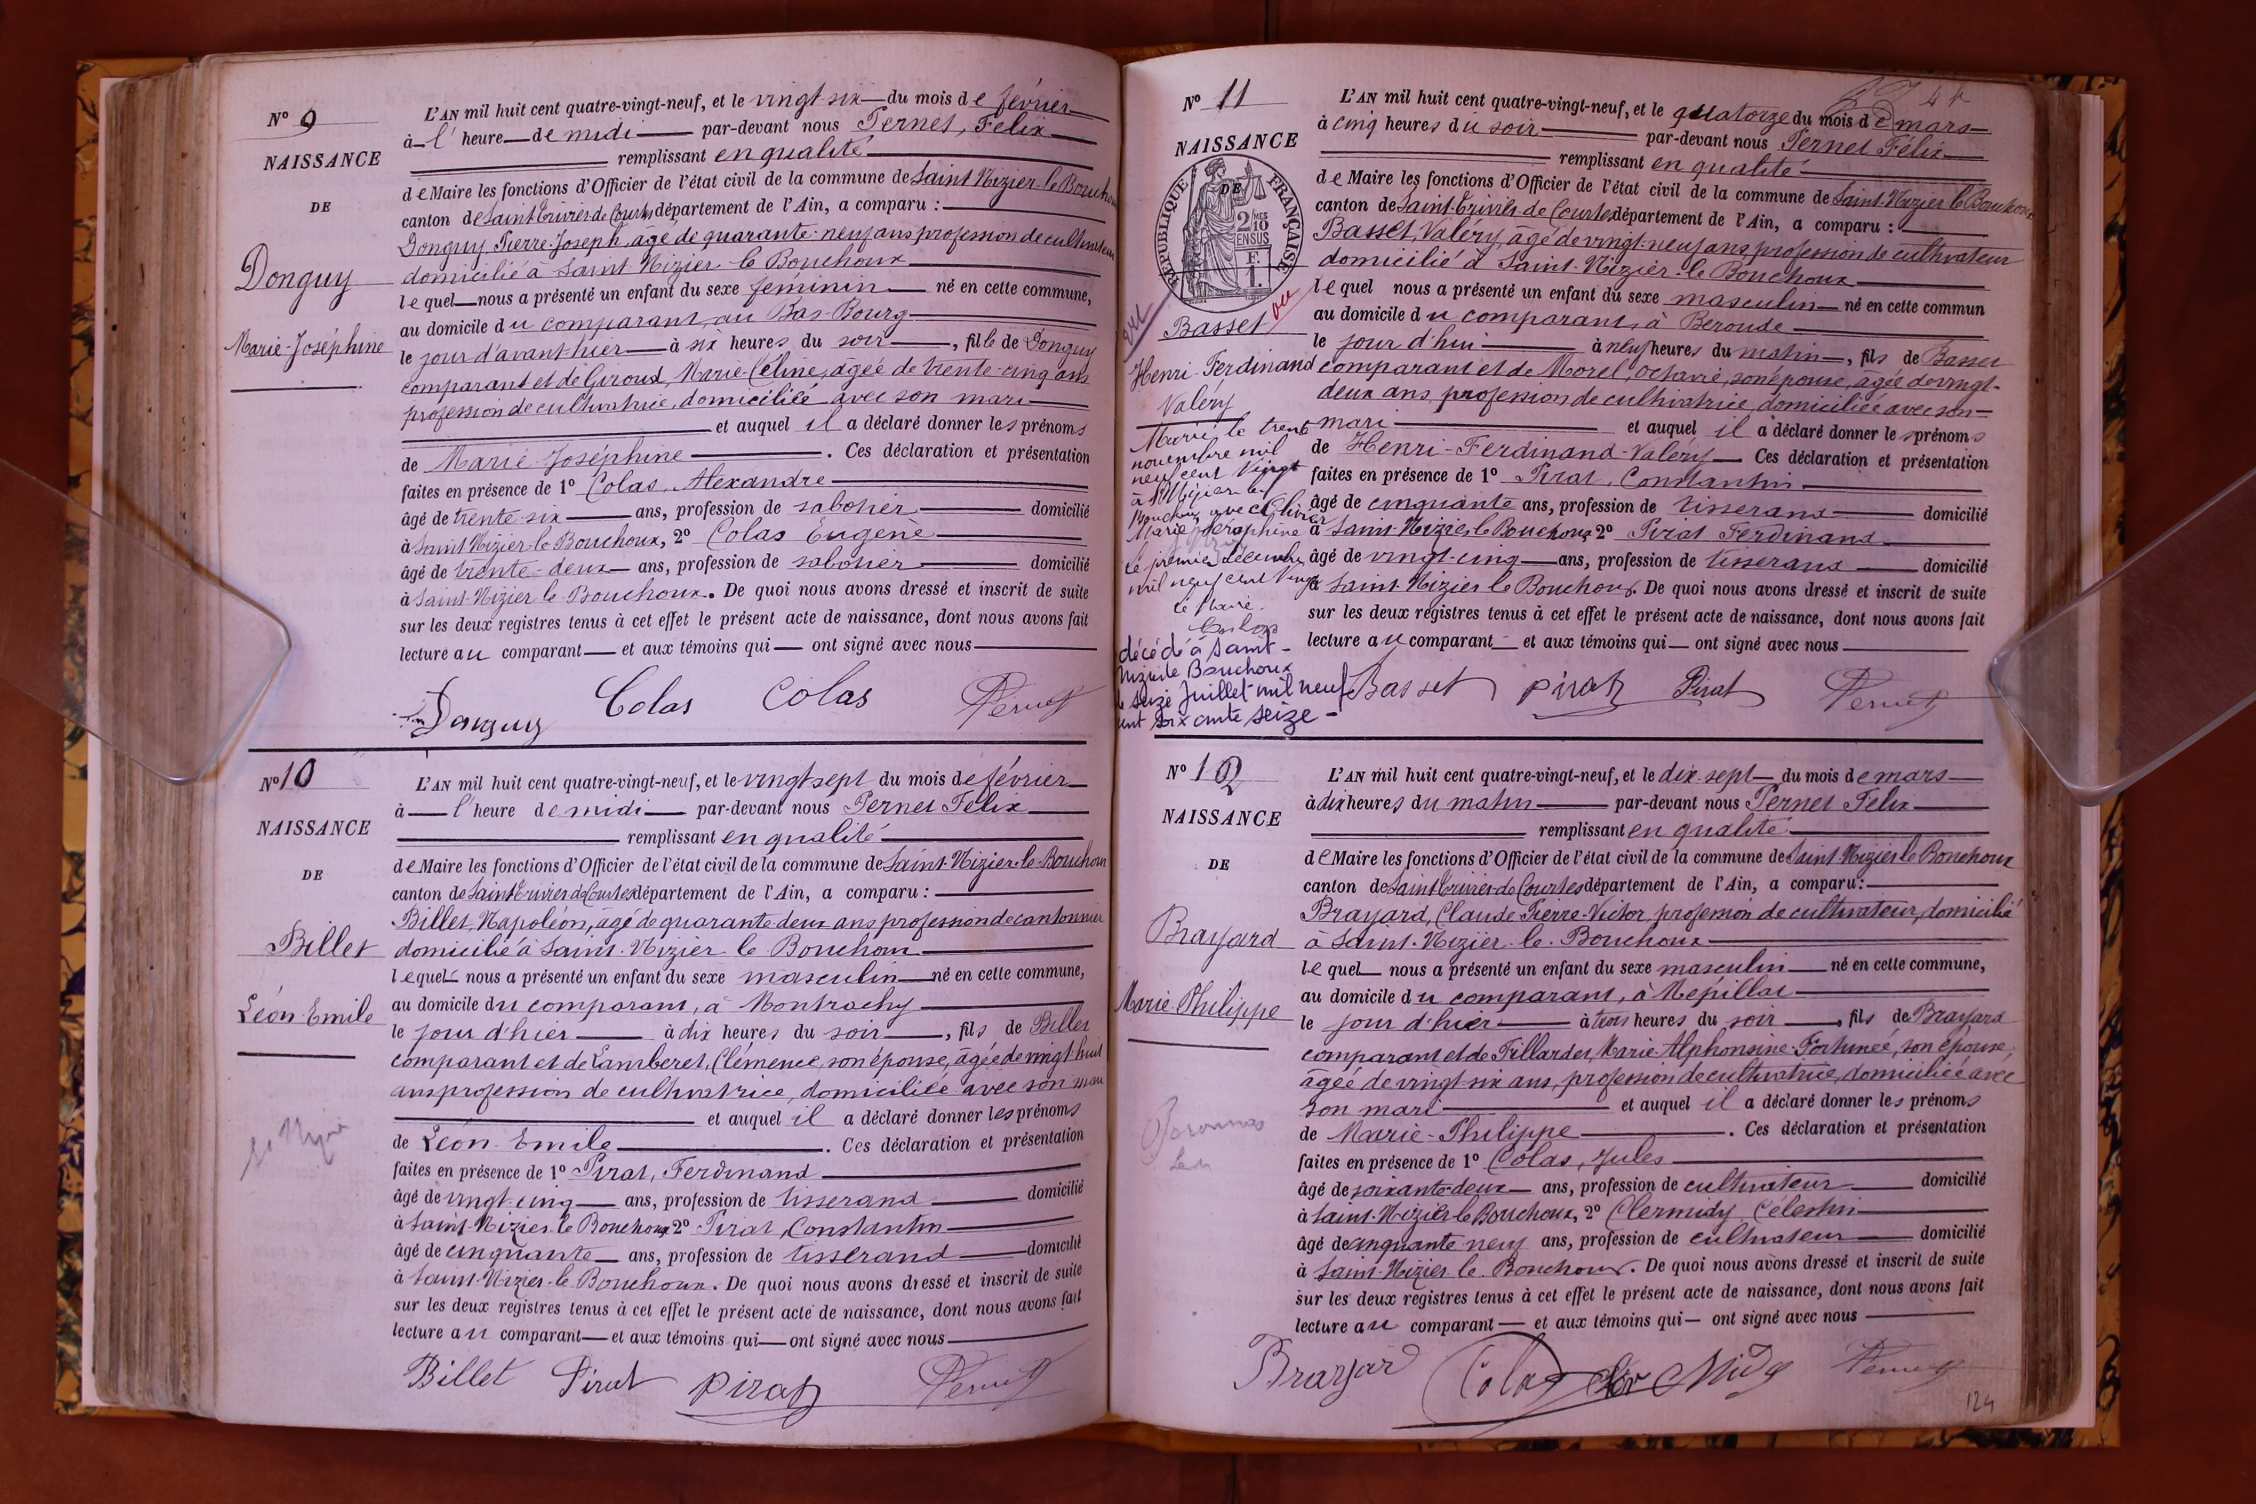 N° 9
NAISSANCE
DE
Donguy
Marie-Joséphine
L'AN mil huit cent quatre-vingt-neuf, et le vingt six du mois de février
à l'heure de midi par-devant nous Pernet, Félix
remplissant en qualité
de Maire les fonctions d'Officier de l'état civil de la commune de Saint Nizier-le Bouchoux
canton de Saint Trivier de Courtes département de l'Ain, a comparu :
Donguy Pierre-Joseph, âgé de quarante-neuf ans profession de cultivateur
domicilié à Saint Nizier le Bouchoux
lequel nous a présenté un enfant du sexe féminin né en cette commune,
au domicile du comparant, au Bas-Bourg
le jour d'avant-hier à six heures du soir, fille de Donguy
comparant et de Giroud, Marie-Céline, âgée de trente-cinq ans
profession de cultivatrice, domiciliée avec son mari
et auquel il a déclaré donner les prénoms
de Marie Joséphine. Ces déclaration et présentation
faites en présence de 1° Colas, Alexandre
âgé de trente-six ans, profession de sabotier domicilié
à Saint Nizier-le Bouchoux, 2° Colas Eugène
âgé de trente-deux ans, profession de sabotier domicilié
à Saint-Nizier le Bouchoux. De quoi nous avons dressé et inscrit de suite
sur les deux registres tenus à cet effet le présent acte de naissance, dont nous avons fait
lecture au comparant et aux témoins qui ont signé avec nous
Donguy Colas Colas Pernet
N° 10
NAISSANCE
DE
Billet
Léon-Emile
L'AN mil huit cent quatre-vingt-neuf, et le vingt sept du mois de février
à l'heure de midi par-devant nous Pernet Félix
remplissant en qualité
de Maire les fonctions d'Officier de l'état civil de la commune de Saint-Nizier-le-Bouchoux
canton de Saint Trivier de Courtes département de l'Ain, a comparu :
Billet, Napoléon, âgé de quarante-deux ans profession de cantonnier
domicilié à Saint-Nizier le Bouchoux
lequel nous a présenté un enfant du sexe masculin né en cette commune,
au domicile du comparant, à Montrachy
le jour d'hier à dix heures du soir, fils de Billet
comparant et de Lamberet, Clémence, son épouse, âgée de vingt-huit
ans profession de cultivatrice, domiciliée avec son mari
et auquel il a déclaré donner les prénoms
de Léon-Emile. Ces déclaration et présentation
faites en présence de 1° Pirat, Ferdinand
âgé de vingt-cinq ans, profession de tisserand domicilié
à Saint-Nizier le Bouchoux 2° Pirat, Constantin
âgé de cinquante ans, profession de tisserand domicilié
à Saint-Nizier-le Bouchoux. De quoi nous avons dressé et inscrit de suite
sur les deux registres tenus à cet effet le présent acte de naissance, dont nous avons fait
lecture au comparant et aux témoins qui ont signé avec nous
Billet Pirat Pirat Pernet
N° 11
NAISSANCE
DE
RÉPUBLIQUE FRANÇAISE
2 MES 10 EN SUS
F. 1.
vu
Basset
Henri-Ferdinand
Valéry
Marié le trente
novembre mil
neuf cent vingt
à St Nizier le
Bouchoux avec
Marie Séraphine
Le premier décembre
mil neuf cent vingt
Le Maire
décédé à Saint-
Nizier le Bouchoux
le seize Juillet mil neuf
cent soixante seize -
L'AN mil huit cent quatre-vingt-neuf, et le quatorze du mois de mars
à cinq heures du soir par-devant nous Pernet Félix
remplissant en qualité
de Maire les fonctions d'Officier de l'état civil de la commune de Saint-Nizier le Bouchoux
canton de Saint-Trivier de Courtes département de l'Ain, a comparu :
Basset, Valéry, âgé de vingt-neuf ans, profession de cultivateur
domicilié à Saint-Nizier-le Bouchoux
lequel nous a présenté un enfant du sexe masculin né en cette commun
au domicile du comparant, à Beroude
le jour d'hui à neuf heures du matin, fils de Basset
comparant et de Morel, Octavie, son épouse, âgée de vingt-
deux ans, profession de cultivatrice, domiciliée avec son
mari et auquel il a déclaré donner les prénoms
de Henri-Ferdinand-Valéry Ces déclaration et présentation
faites en présence de 1° Pirat, Constantin
âgé de cinquante ans, profession de tisserand domicilié
à Saint-Nizier le Bouchoux 2° Pirat Ferdinand
âgé de vingt-cinq ans, profession de tisserand domicilié
à Saint-Nizier le Bouchoux. De quoi nous avons dressé et inscrit de suite
sur les deux registres tenus à cet effet le présent acte de naissance, dont nous avons fait
lecture au comparant et aux témoins qui ont signé avec nous
Basset Pirat Pirat Pernet
N° 12
NAISSANCE
DE
Brayard
Marie Philippe
L'AN mil huit cent quatre-vingt-neuf, et le dix-sept du mois de mars
à dix heures du matin par-devant nous Pernet Félix
remplissant en qualité
de Maire les fonctions d'Officier de l'état civil de la commune de Saint-Nizier le Bouchoux
canton de Saint Trivier-de Courtes département de l'Ain, a comparu :
Brayard, Claude Pierre-Victor, profession de cultivateur, domicilié
à Saint-Nizier-le-Bouchoux
lequel nous a présenté un enfant du sexe masculin né en cette commune,
au domicile du comparant, à Mépillat
le jour d'hier à trois heures du soir, fils de Brayard
comparant et de Pillardet, Marie Alphonsine Fortunée, son épouse,
âgée de vingt-six ans, profession de cultivatrice, domiciliée avec
son mari et auquel il a déclaré donner les prénoms
de Marie-Philippe. Ces déclaration et présentation
faites en présence de 1° Colas, Jules
âgé de soixante-deux ans, profession de cultivateur domicilié
à Saint-Nizier le Bouchoux, 2° Clermidy Célestin
âgé de cinquante neuf ans, profession de cultivateur domicilié
à Saint-Nizier le Bouchoux. De quoi nous avons dressé et inscrit de suite
sur les deux registres tenus à cet effet le présent acte de naissance, dont nous avons fait
lecture au comparant et aux témoins qui ont signé avec nous
Brayard Colas Clermidy Pernet
124